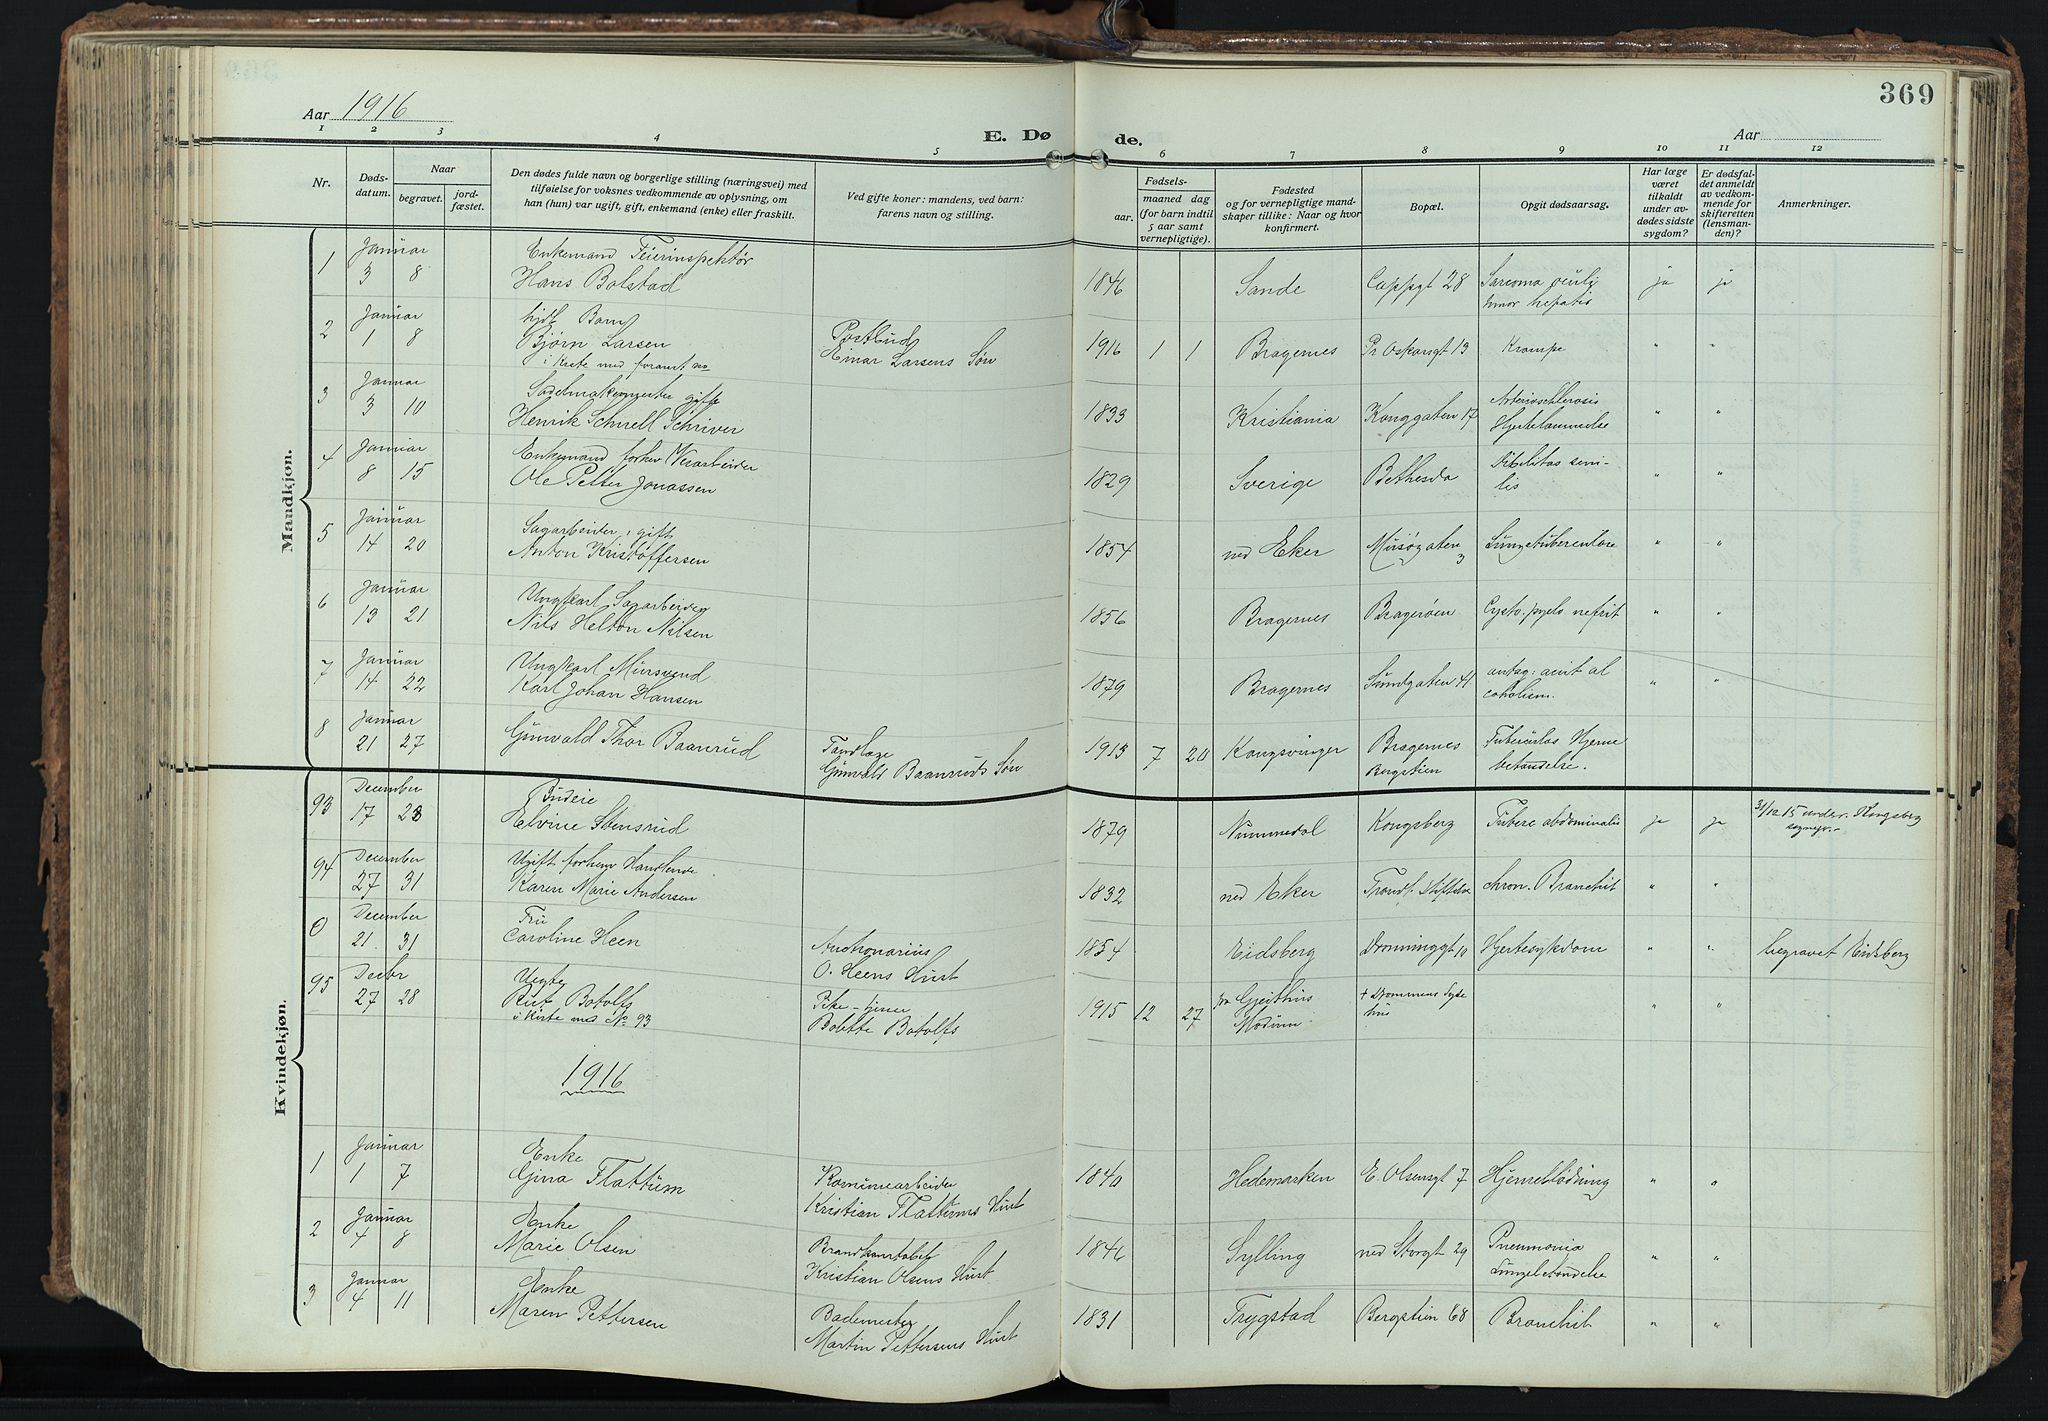 369
Aar 1916
E. Dø de.
Aar
1 2 3 4 5 6 7 8 9 10 11 12
Nr.
Døds-
datum.
Naar
begravet.
jord-
fæstet.
Den dødes fulde navn og borgerlige stilling (næringsvei) med
tilføielse for voksnes vedkommende av oplysning, om
han (hun) var ugift, gift, enkemand (enke) eller fraskilt.
Ved gifte koner: mandens, ved barn:
farens navn og stilling.
Fødsels-
aar. maaned dag
(for barn indtil
5 aar samt
vernepligtige).
Fødested
og for vernepligtige mand-
skaper tillike: Naar og hvor
konfirmert.
Bopæl.
Opgit dødsaarsag.
Har læge
været
tilkaldt
under av-
dødes sidste
sygdom?
Er dødsfal-
det anmeldt
av vedkom-
mende for
skifteretten
(lensman-
den)?
Anmerkninger.
Mandkjøn.
Januar Enkemand Feierinspektør
1 3 8 Hans Bolstad 1846 Sande Cappgt 28 Sarcoma oculi
hepatis ja ja
Januar Barn Postbud
2 1 8 Bjørn Larsen Einar Larsens Søn 1916 1 1 Bragernes Pr Oskarsgt 13 Krampe " "
i kiste med
Januar Sadelmakermester gift
3 3 10 Henrik Schnell Schriver 1833 Kristiania Konggaten 17 Arteriosclerosis
Hjertelammelse " "
Januar Enkemand forhen
4 8 15 Ole Petter Jonassen 1829 Sverige Bethesda Debilitas seni-
lis " "
Januar Sagarbeider, gift
5 14 20 Anton Kristoffersen 1854 ned Eker Musøgaten 3 Lungetuberculose " "
Januar Ungkarl Sagarbeider
6 13 21 Nils Helton Nilsen 1856 Bragernes Bragerøen Cysto. pyelo nefrit " "
Januar Ungkarl Mursvend
7 14 22 Karl Johan Hansen 1879 Bragernes Sundgaten 41 antag: acut al
coholism. " "
Januar
8 21 27 Gunvald Thor Baanrud Tandlæge
Gunvald Baanruds Søn 1913 7 20 Kongsvinger Bragernes
Bergstien Tuberculøs Hjerne
betændelse. " "
Kvindekjøn.
December Budeie
93 17 23 Elvine Stensrud 1879 Nummedal Kongsberg Tuberc abdominalis ja ja 31/12 15 underr. Kongsberg
sognepr.
December Ugift forhenv Handlende
94 27 31 Karen Marie Andersen 1832 ned Eker Trondt. Stiftelse chron. Bronchit " "
December Fru
0 21 31 Caroline Heen Auctionarius
O. Heens Hust 1854 Eidsberg Dronninggt 10 Hjertesykdom " " begravet Eidsberg
Decbr Uegte
95 27 28 Rut Botolfs Pike - tjener
i kiste med No 93 Bolette Botolfs 1915 12 27 Gjeithus
Modum + Drammens Syke
hus " "
1916
Januar Enke
1 1 7 Gina Flattum Komunearbeider
Kristian Flattums Hust 1840 Hedemarken E. Olsensgt 7 Hjerneblødning " "
Januar Enke
2 4 8 Marie Olsen Brandkonstabel
Kristian Olsens Hust 1846 Sylling ned Storgt 29 Pneumonia
Lungebetændelse " "
Januar Enke
3 4 11 Maren Pettersen Bademester
Martin Pettersens Hust 1831 Trygstad Bergstien 68 Bronchit " "